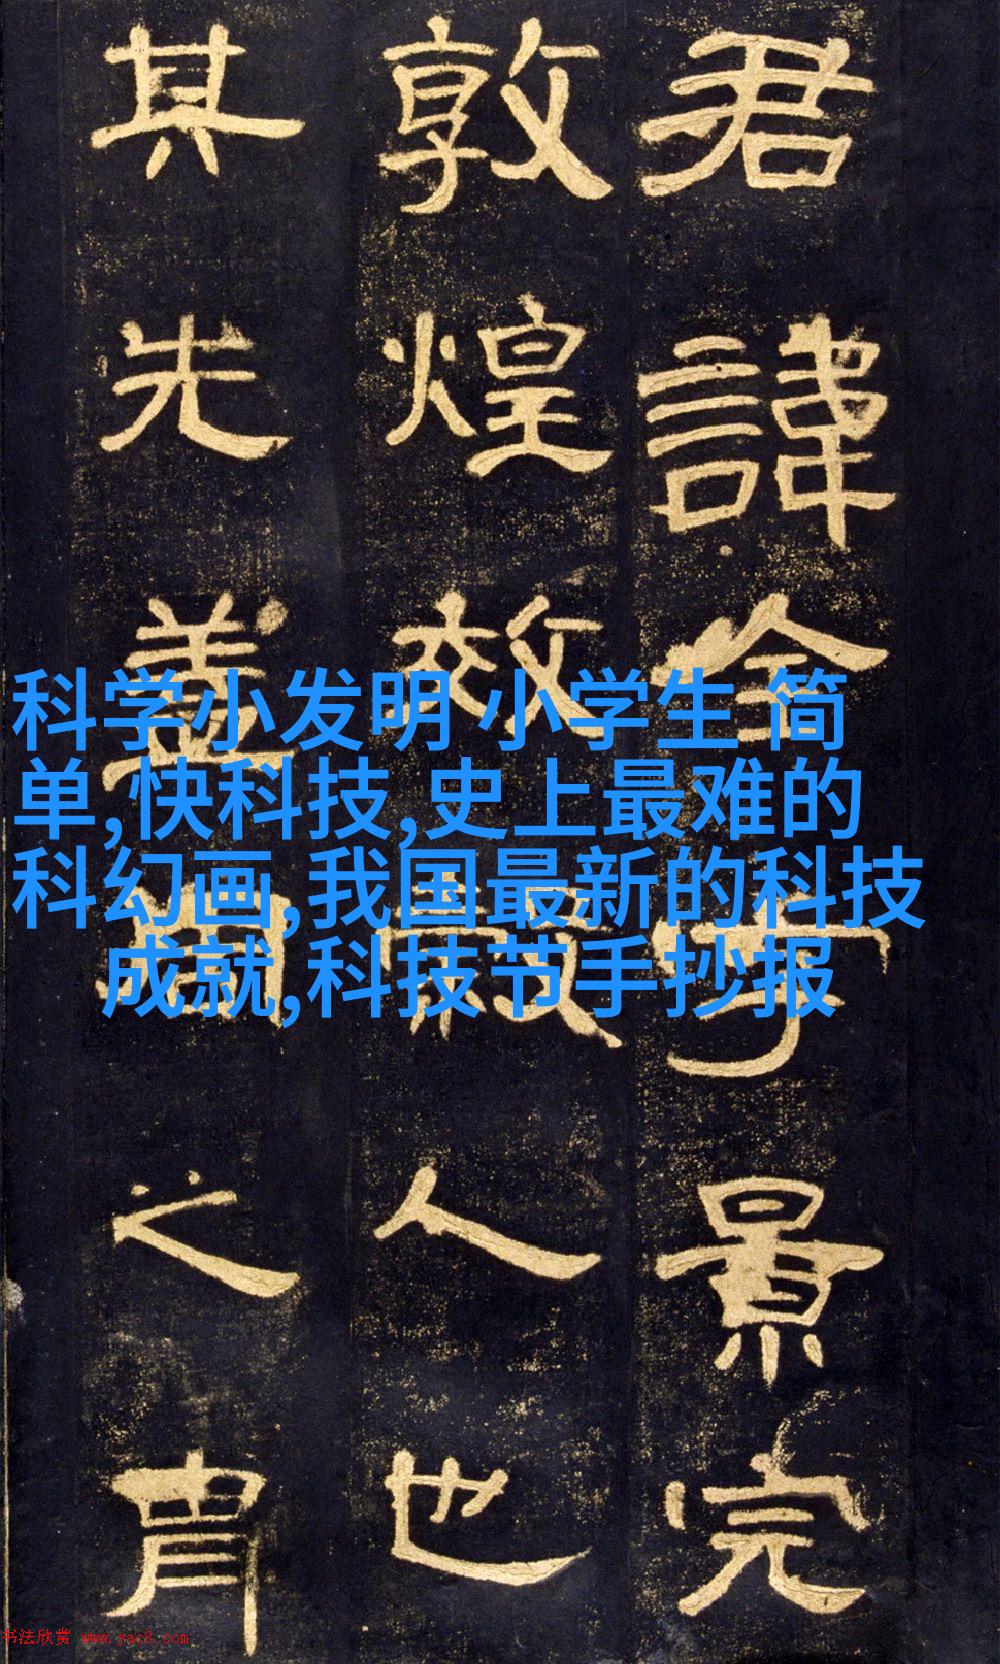 君諱全字景完
敦煌效穀人也
其先蓋周之胄
科学小发明 小学生 简
单,快科技,史上最难的
科幻画,我国最新的科技
成就,科技节手抄报
书法欣赏 www.yac8.com